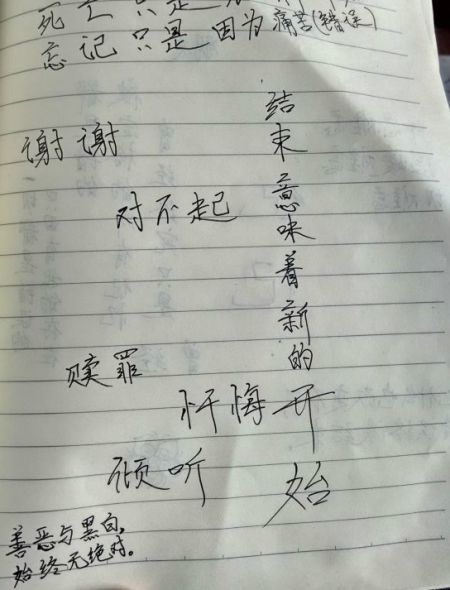 死亡只是
忘记只是因为痛苦(错误)
谢谢
对不起
结束意味着新的开始
赎罪
忏悔
倾听
善恶与黑白,
始终无绝对。